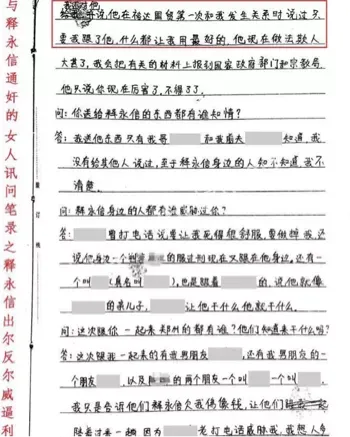 与释永信通奸的女人讯问笔录之释永信出尔反尔威逼利
我就对他
说他在福达国留第一次和我发生关系时说过只
要我跟了他,什么都让我用最好的,他现在做法欺人
太甚了,我会把有关的材料上报到国家政府部门和宗教局,
他只说你现在厉害了,不得了了。
问:你送给释永信的东西都有谁知情?
答:我送他东西只有我哥 和我前夫 知道,我
没有给其他人说过,至于释永信身边的人知不知道,我不
清楚。
问:释永信身边的人都有谁威胁过你?
答: 曾打电话说要让我死得很舒服,要做掉我,还
说他身边一个叫 的服过刑现在又跟在他身边,还有一
个叫 (真名叫 ),也是跟着 的,说他就像
的亲儿子, 让他干什么他就干什么。
问:这次跟你一起来郑州的都有谁?他们知道来干什么吗?
答:这次跟我一起来的有我男朋友 ,还有我男朋友的一
个朋友 ,以及 的两个朋友一个叫 一个叫 ,
我只是告诉他们释永信欠我佛像钱,让他们
陪着过来一趟,因为 老打电话威胁我,我想人多